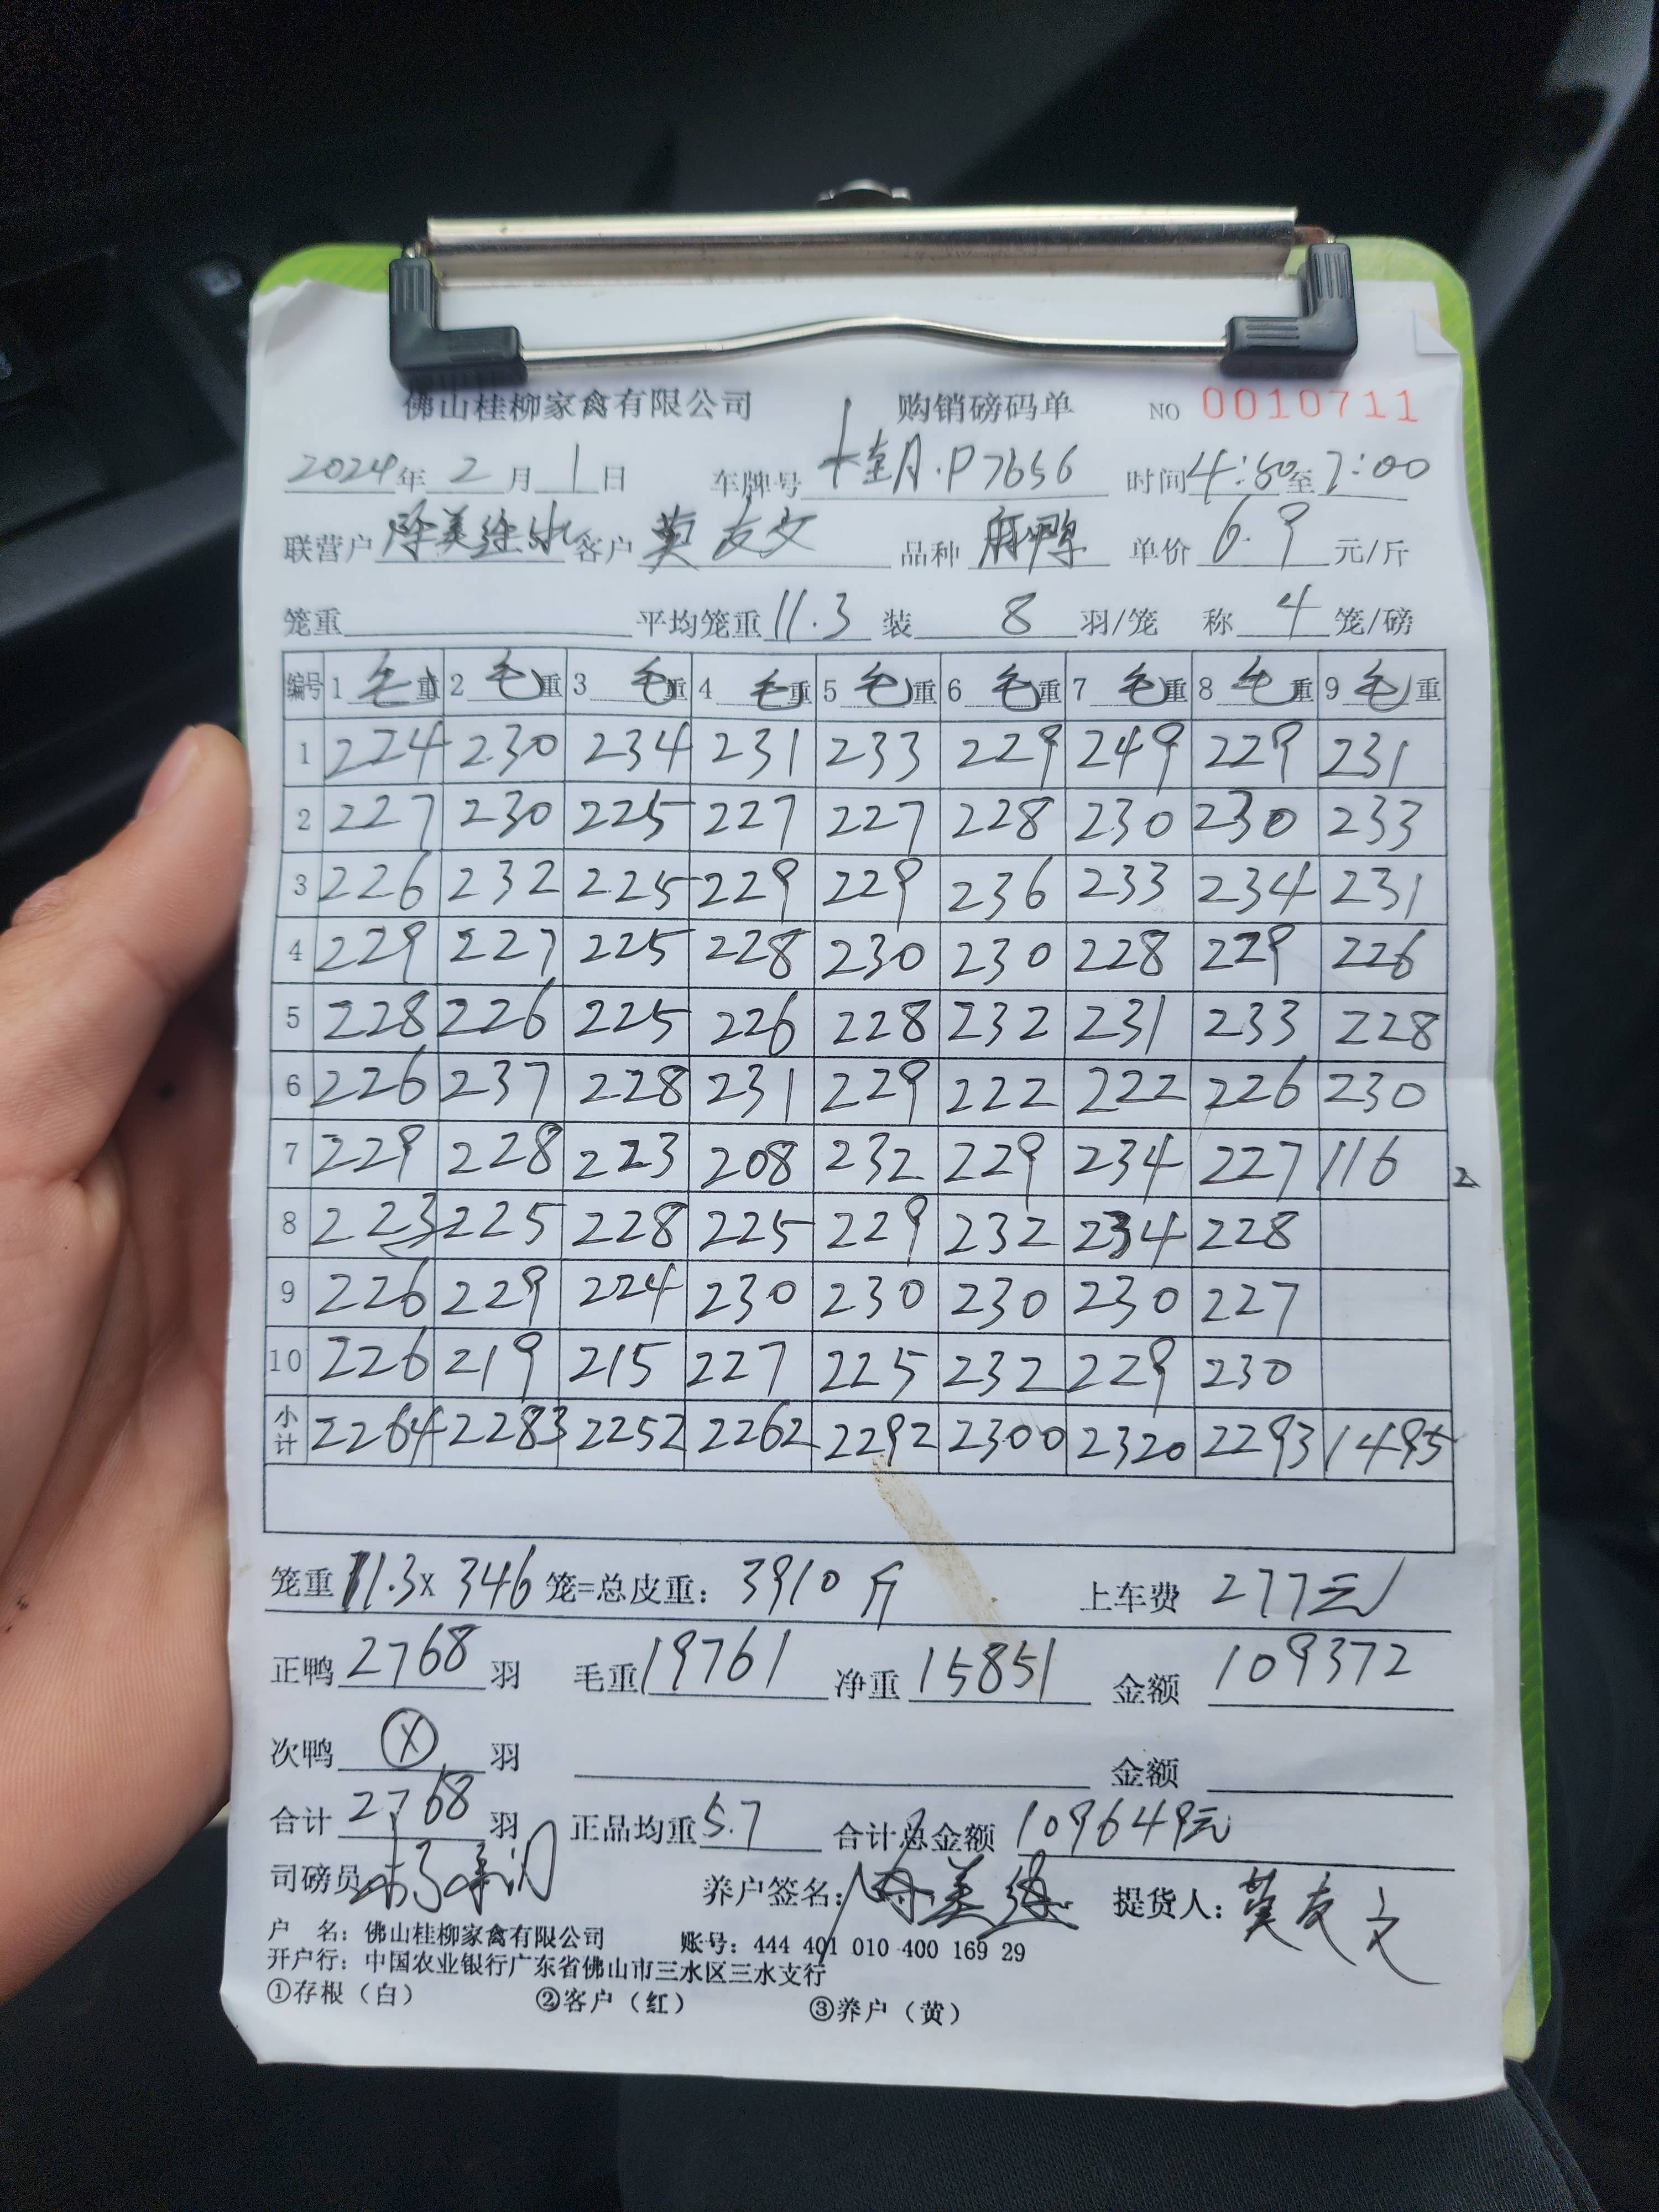 佛山桂柳家禽有限公司 购销磅码单 NO 0010711
2024年 2 月 1 日 车牌号 桂A·P7656 时间 4:50 至 7:00
联营户 客户 莫友文 品种 麻鸭 单价 6.9 元/斤
笼重 平均笼重 11.3 装 8 羽/笼 称 4 笼/磅
编号 1 毛重 2 毛重 3 毛重 4 毛重 5 毛重 6 毛重 7 毛重 8 毛重 9 毛重
1 224 230 234 231 233 229 249 229 231
2 227 230 225 227 227 228 230 230 233
3 226 232 225 229 229 236 233 234 231
4 229 227 225 228 230 230 228 229 226
5 228 226 225 226 228 232 231 233 228
6 226 237 228 231 229 222 222 226 230
7 229 228 223 208 232 229 234 227 116 2
8 223 225 228 225 229 232 234 228
9 226 229 224 230 230 230 230 227
10 226 219 215 227 225 232 229 230
小计 2264 2283 2252 2262 2292 2300 2320 2293 1495
笼重 11.3 x 346 笼=总皮重: 3910 斤 上车费 277元
正鸭 2768 羽 毛重 19761 净重 15851 金额 109372
次鸭 X 羽 金额
合计 2768 羽 正品均重 5.7 合计总金额 109649元
司磅员 养户签名: 提货人: 莫友文
户 名: 佛山桂柳家禽有限公司 账号: 444 401 010 400 169 29
开户行: 中国农业银行广东省佛山市三水区三水支行
①存根（白） ②客户（红） ③养户（黄）